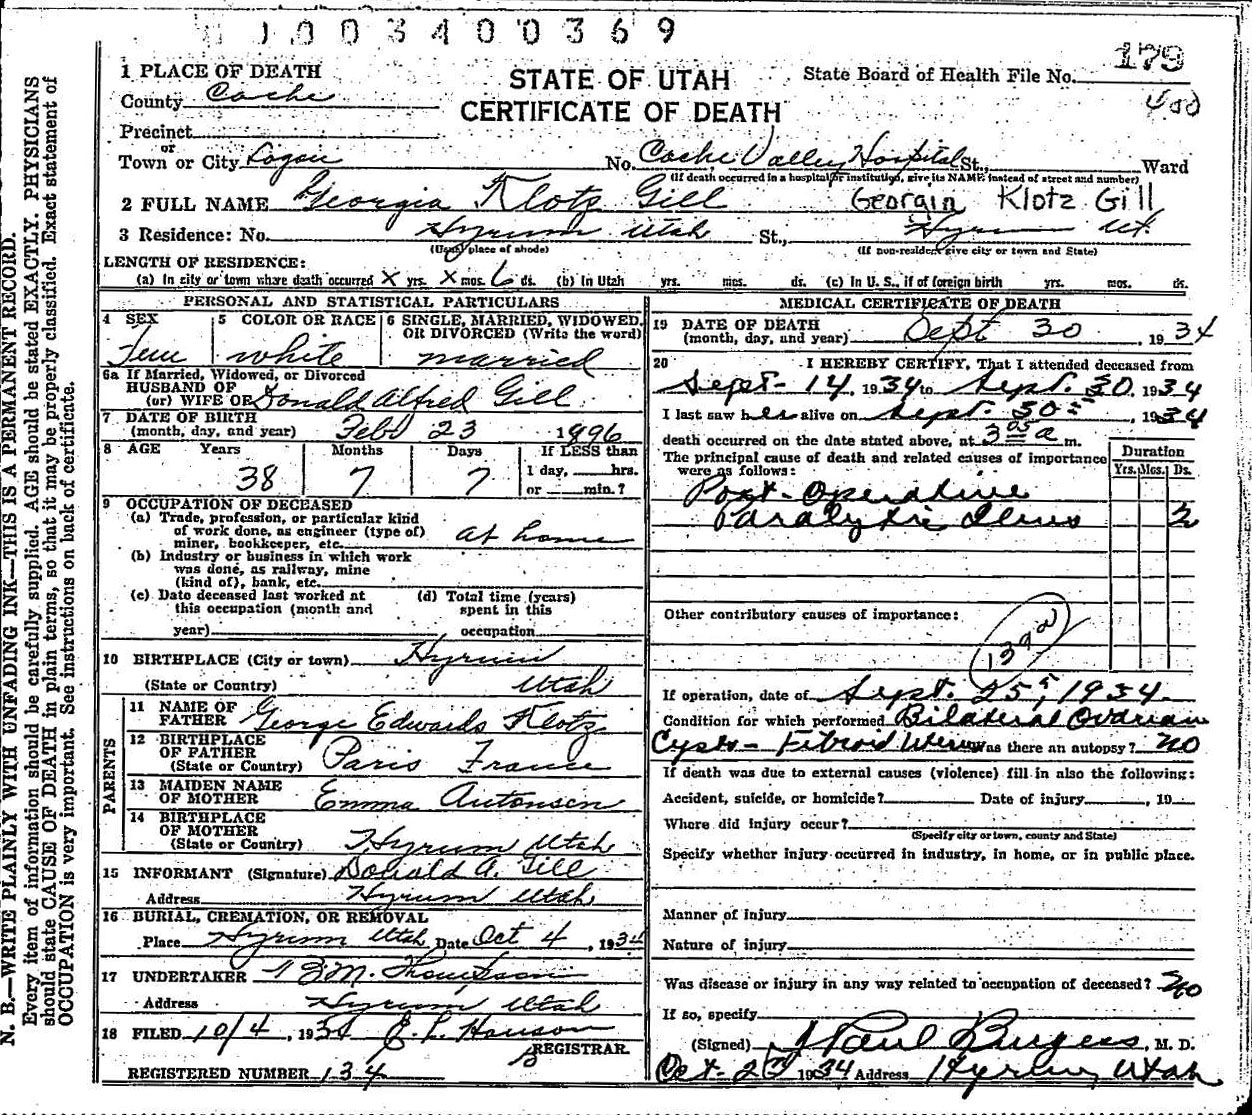 1 0 0 3 4 0 0 3 6 9
1 PLACE OF DEATH
STATE OF UTAH
CERTIFICATE OF DEATH
State Board of Health File No. 179
400
County Cache
Precinct
or
Town or City Logan No. Cache Valley Hospital St., Ward
(If death occurred in a hospital or institution, give its NAME instead of street and number)
2 FULL NAME Georgia Klotz Gill Georgin Klotz Gill
3 Residence: No. Hyrum Utah St., Hyrum Ut.
(Usual place of abode) (If non-resident give city or town and State)
LENGTH OF RESIDENCE:
(a) In city or town where death occurred X yrs. X mos. 6 ds. (b) In Utah yrs. mos. ds. (c) In U. S., if of foreign birth yrs. mos. ds.
PERSONAL AND STATISTICAL PARTICULARS
4 SEX
Fem
5 COLOR OR RACE
white
6 SINGLE, MARRIED, WIDOWED, OR DIVORCED (Write the word)
married
6a If Married, Widowed, or Divorced
HUSBAND OF
(or) WIFE OF Donald Alfred Gill
7 DATE OF BIRTH
(month, day, and year) Feb 23 1896
8 AGE Years Months Days If LESS than
1 day, hrs.
38 7 7 or min.?
9 OCCUPATION OF DECEASED
(a) Trade, profession, or particular kind
of work done, as engineer (type of)
miner, bookkeeper, etc. at home
(b) Industry or business in which work
was done, as railway, mine
(kind of), bank, etc.
(c) Date deceased last worked at
this occupation (month and
year)
(d) Total time (years)
spent in this
occupation
10 BIRTHPLACE (City or town) Hyrum
(State or Country) Utah
PARENTS
11 NAME OF
FATHER George Edwards Klotz
12 BIRTHPLACE
OF FATHER
(State or Country) Paris France
13 MAIDEN NAME
OF MOTHER Emma Antonsen
14 BIRTHPLACE
OF MOTHER
(State or Country) Hyrum Utah
15 INFORMANT (Signature) Donald A. Gill
Address Hyrum Utah
16 BURIAL, CREMATION, OR REMOVAL
Place Hyrum Utah Date Oct 4, 1934
17 UNDERTAKER M. Thompson
Address Hyrum Utah
18 FILED 10/4, 1934
REGISTRAR
REGISTERED NUMBER 134
MEDICAL CERTIFICATE OF DEATH
19 DATE OF DEATH
(month, day, and year) Sept 30, 1934
20 I HEREBY CERTIFY, That I attended deceased from
Sept. 14, 1934 to Sept. 30, 1934
I last saw her alive on Sept. 30th, 1934
death occurred on the date stated above, at 3 05 a m.
The principal cause of death and related causes of importance
were as follows:
Duration
Yrs. Mos. Ds.
Post-Operative
Paralytic Ileus 2
Other contributory causes of importance:
139a
If operation, date of Sept. 25, 1934.
Condition for which performed Bilateral Ovarian
Cysts - Fibroid Uterus Was there an autopsy? no
If death was due to external causes (violence) fill in also the following:
Accident, suicide, or homicide? Date of injury , 19
Where did injury occur?
(Specify city or town, county and State)
Specify whether injury occurred in industry, in home, or in public place.
Manner of injury
Nature of injury
Was disease or injury in any way related to occupation of deceased? no
If so, specify
(Signed) Paul Burgess, M. D.
Oct- 2nd 1934 Address Hyrum, Utah
N. B.—WRITE PLAINLY WITH UNFADING INK—THIS IS A PERMANENT RECORD.
Every item of information should be carefully supplied. AGE should be stated EXACTLY. PHYSICIANS
should state CAUSE OF DEATH in plain terms, so that it may be properly classified. Exact statement of
OCCUPATION is very important. See instructions on back of certificate.